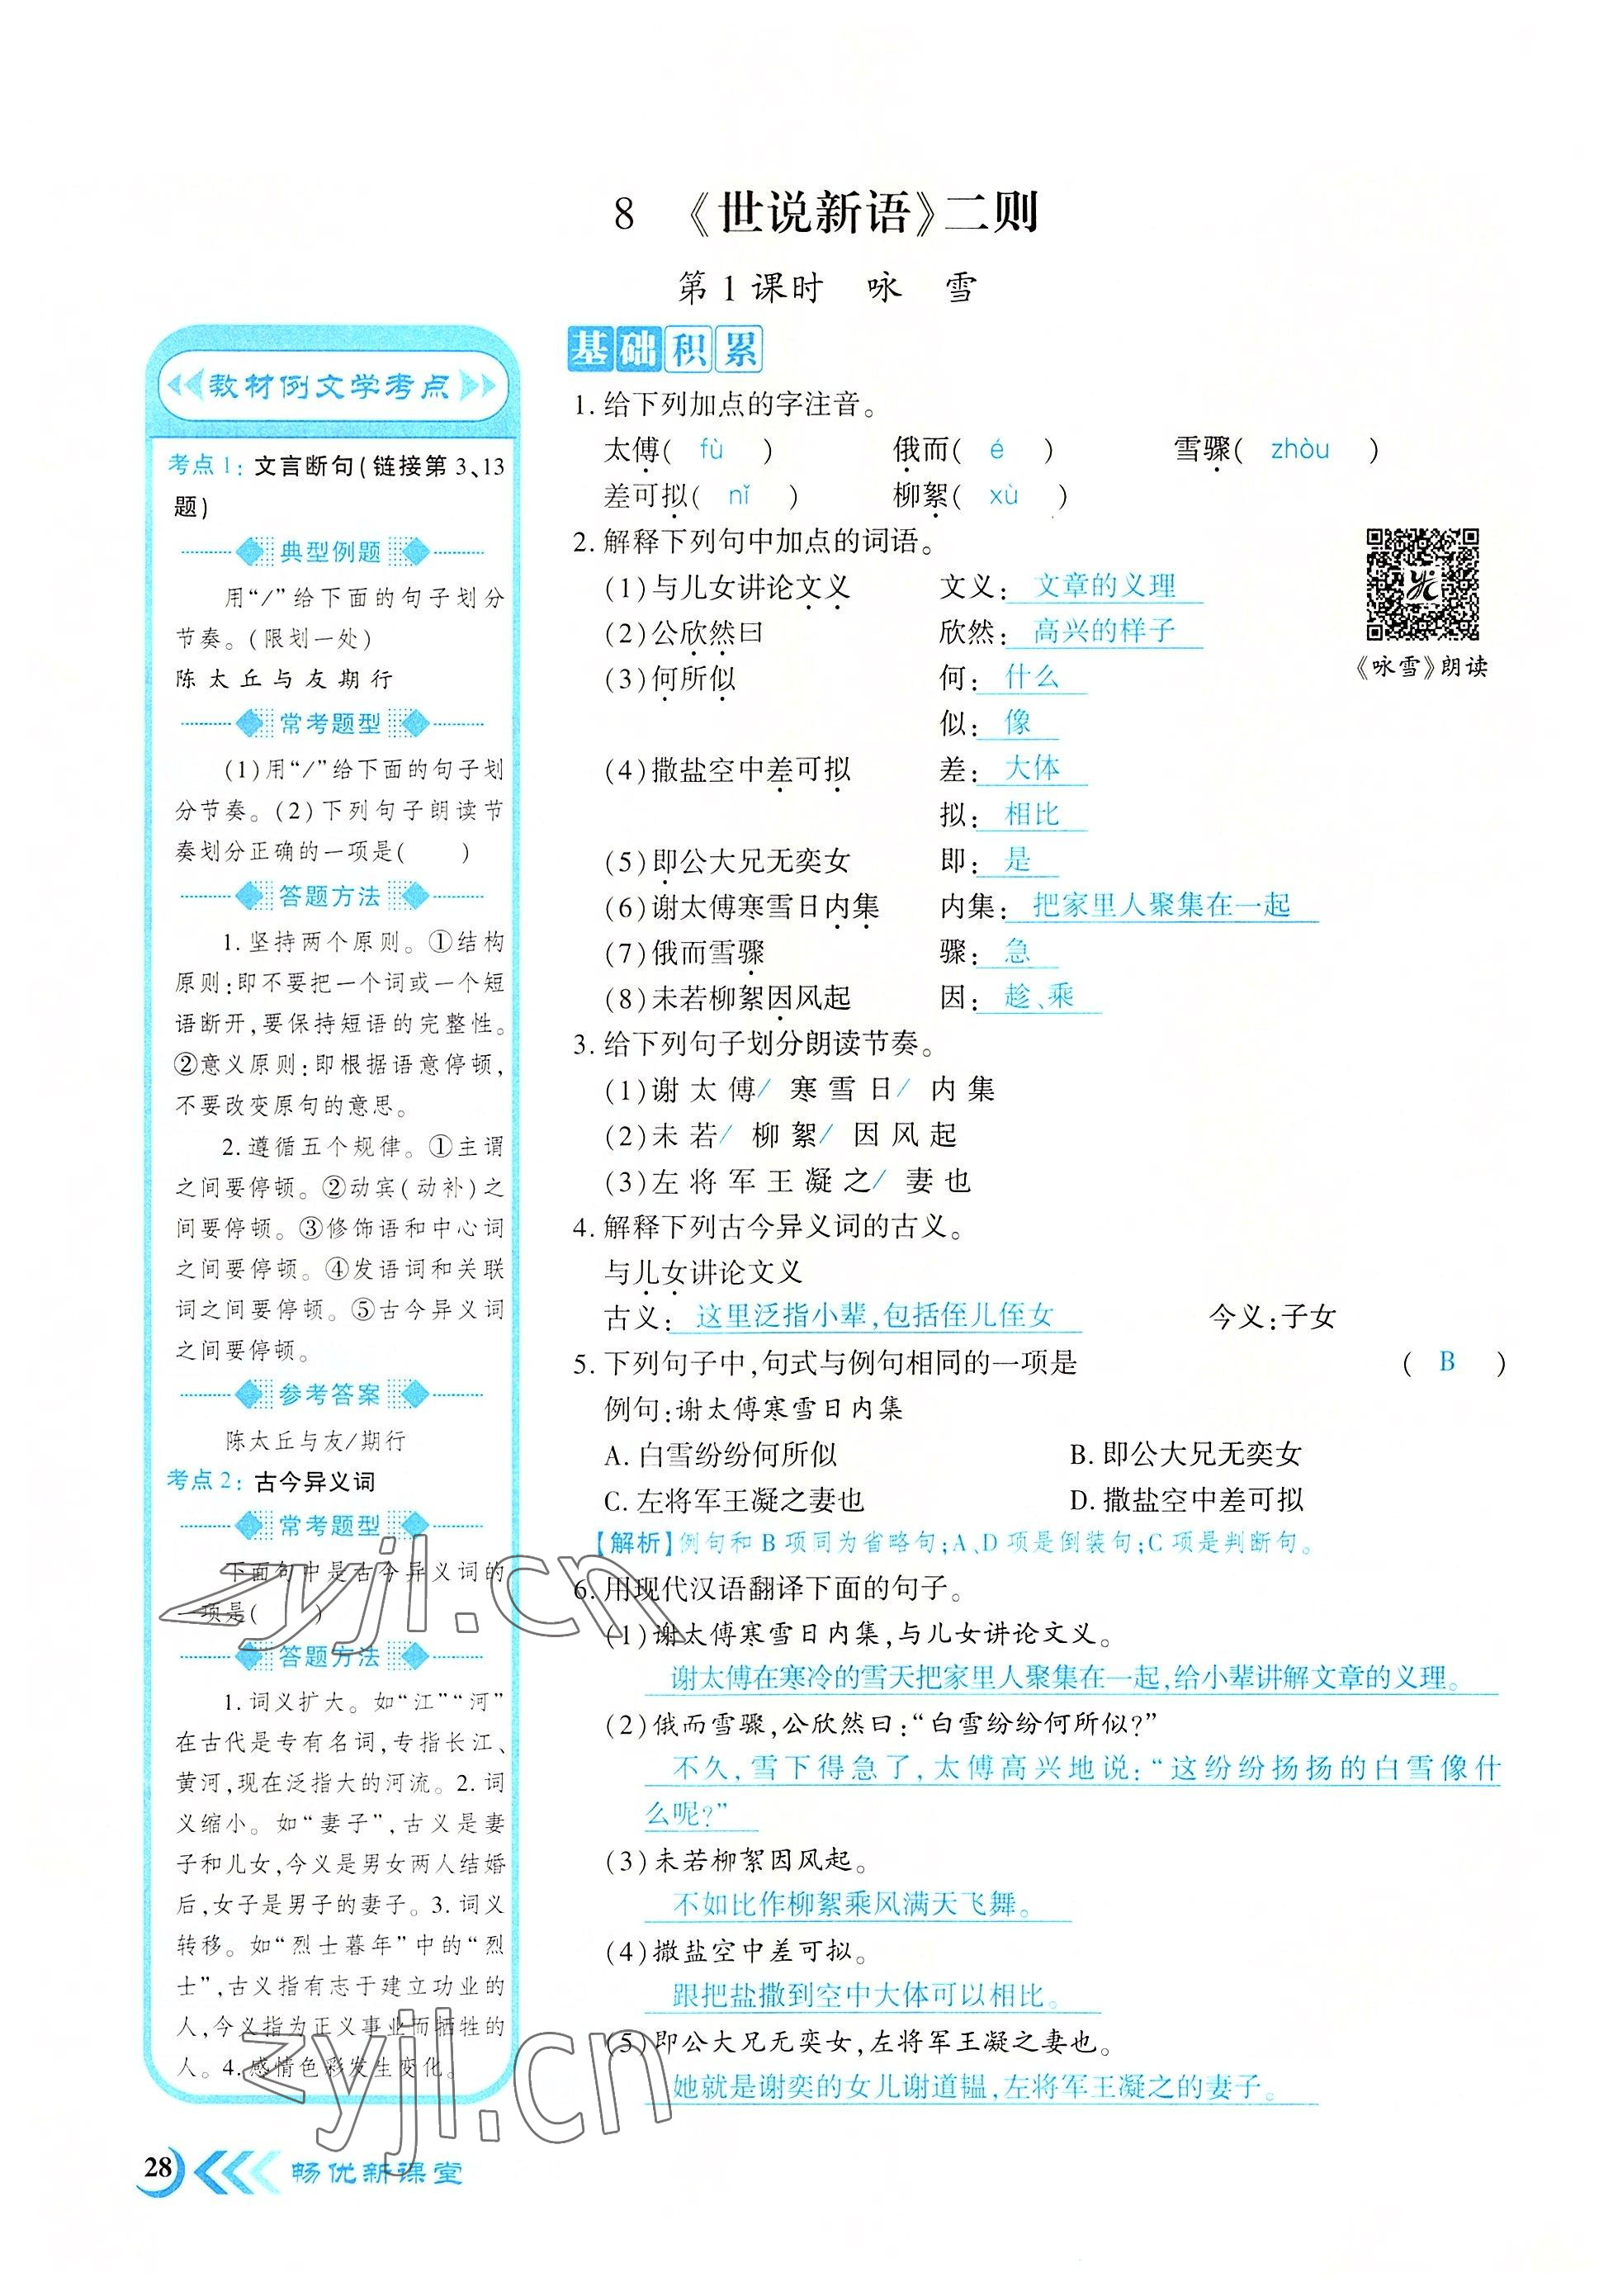 8 《世说新语》二则
第1课时 咏 雪
教材例文学考点
考点1：文言断句(链接第3、13
题)
典型例题
用“/”给下面的句子划分
节奏。(限划一处)
陈太丘与友期行
常考题型
(1)用“/”给下面的句子划
分节奏。(2)下列句子朗读节
奏划分正确的一项是(  )
答题方法
1.坚持两个原则。①结构
原则:即不要把一个词或一个短
语断开,要保持短语的完整性。
②意义原则:即根据语意停顿,
不要改变原句的意思。
2.遵循五个规律。①主谓
之间要停顿。②动宾(动补)之
间要停顿。③修饰语和中心词
之间要停顿。④发语词和关联
词之间要停顿。⑤古今异义词
之间要停顿。
参考答案
陈太丘与友/期行
考点2：古今异义词
常考题型
下面句中是古今异义词的
一项是(  )
答题方法
1.词义扩大。如“江”“河”
在古代是专有名词,专指长江、
黄河,现在泛指大的河流。2.词
义缩小。如“妻子”,古义是妻
子和儿女,今义是男女两人结婚
后,女子是男子的妻子。3.词义
转移。如“烈士暮年”中的“烈
士”,古义指有志于建立功业的
人,今义指为正义事业而牺牲的
人。4.感情色彩发生变化。
基础积累
1.给下列加点的字注音。
太傅( fù ) 俄而( é ) 雪骤( zhòu )
差可拟( nǐ ) 柳絮( xù )
2.解释下列句中加点的词语。
(1)与儿女讲论文义 文义: 文章的义理
(2)公欣然曰 欣然: 高兴的样子
(3)何所似 何: 什么
似: 像
(4)撒盐空中差可拟 差: 大体
拟: 相比
(5)即公大兄无奕女 即: 是
(6)谢太傅寒雪日内集 内集: 把家里人聚集在一起
(7)俄而雪骤 骤: 急
(8)未若柳絮因风起 因: 趁、乘
《咏雪》朗读
3.给下列句子划分朗读节奏。
(1)谢太傅/寒雪日/内集
(2)未若/柳絮/因风起
(3)左将军王凝之/妻也
4.解释下列古今异义词的古义。
与儿女讲论文义
古义: 这里泛指小辈,包括侄儿侄女 今义:子女
5.下列句子中,句式与例句相同的一项是 ( B )
例句:谢太傅寒雪日内集
A.白雪纷纷何所似 B.即公大兄无奕女
C.左将军王凝之妻也 D.撒盐空中差可拟
【解析】例句和B项同为省略句;A、D项是倒装句;C项是判断句。
6.用现代汉语翻译下面的句子。
(1)谢太傅寒雪日内集,与儿女讲论文义。
谢太傅在寒冷的雪天把家里人聚集在一起,给小辈讲解文章的义理。
(2)俄而雪骤,公欣然曰:“白雪纷纷何所似?”
不久,雪下得急了,太傅高兴地说:“这纷纷扬扬的白雪像什
么呢?”
(3)未若柳絮因风起。
不如比作柳絮乘风满天飞舞。
(4)撒盐空中差可拟。
跟把盐撒到空中大体可以相比。
(5)即公大兄无奕女,左将军王凝之妻也。
她就是谢奕的女儿谢道韫,左将军王凝之的妻子。
28 畅优新课堂
zyjl.cn
zyjl.cn